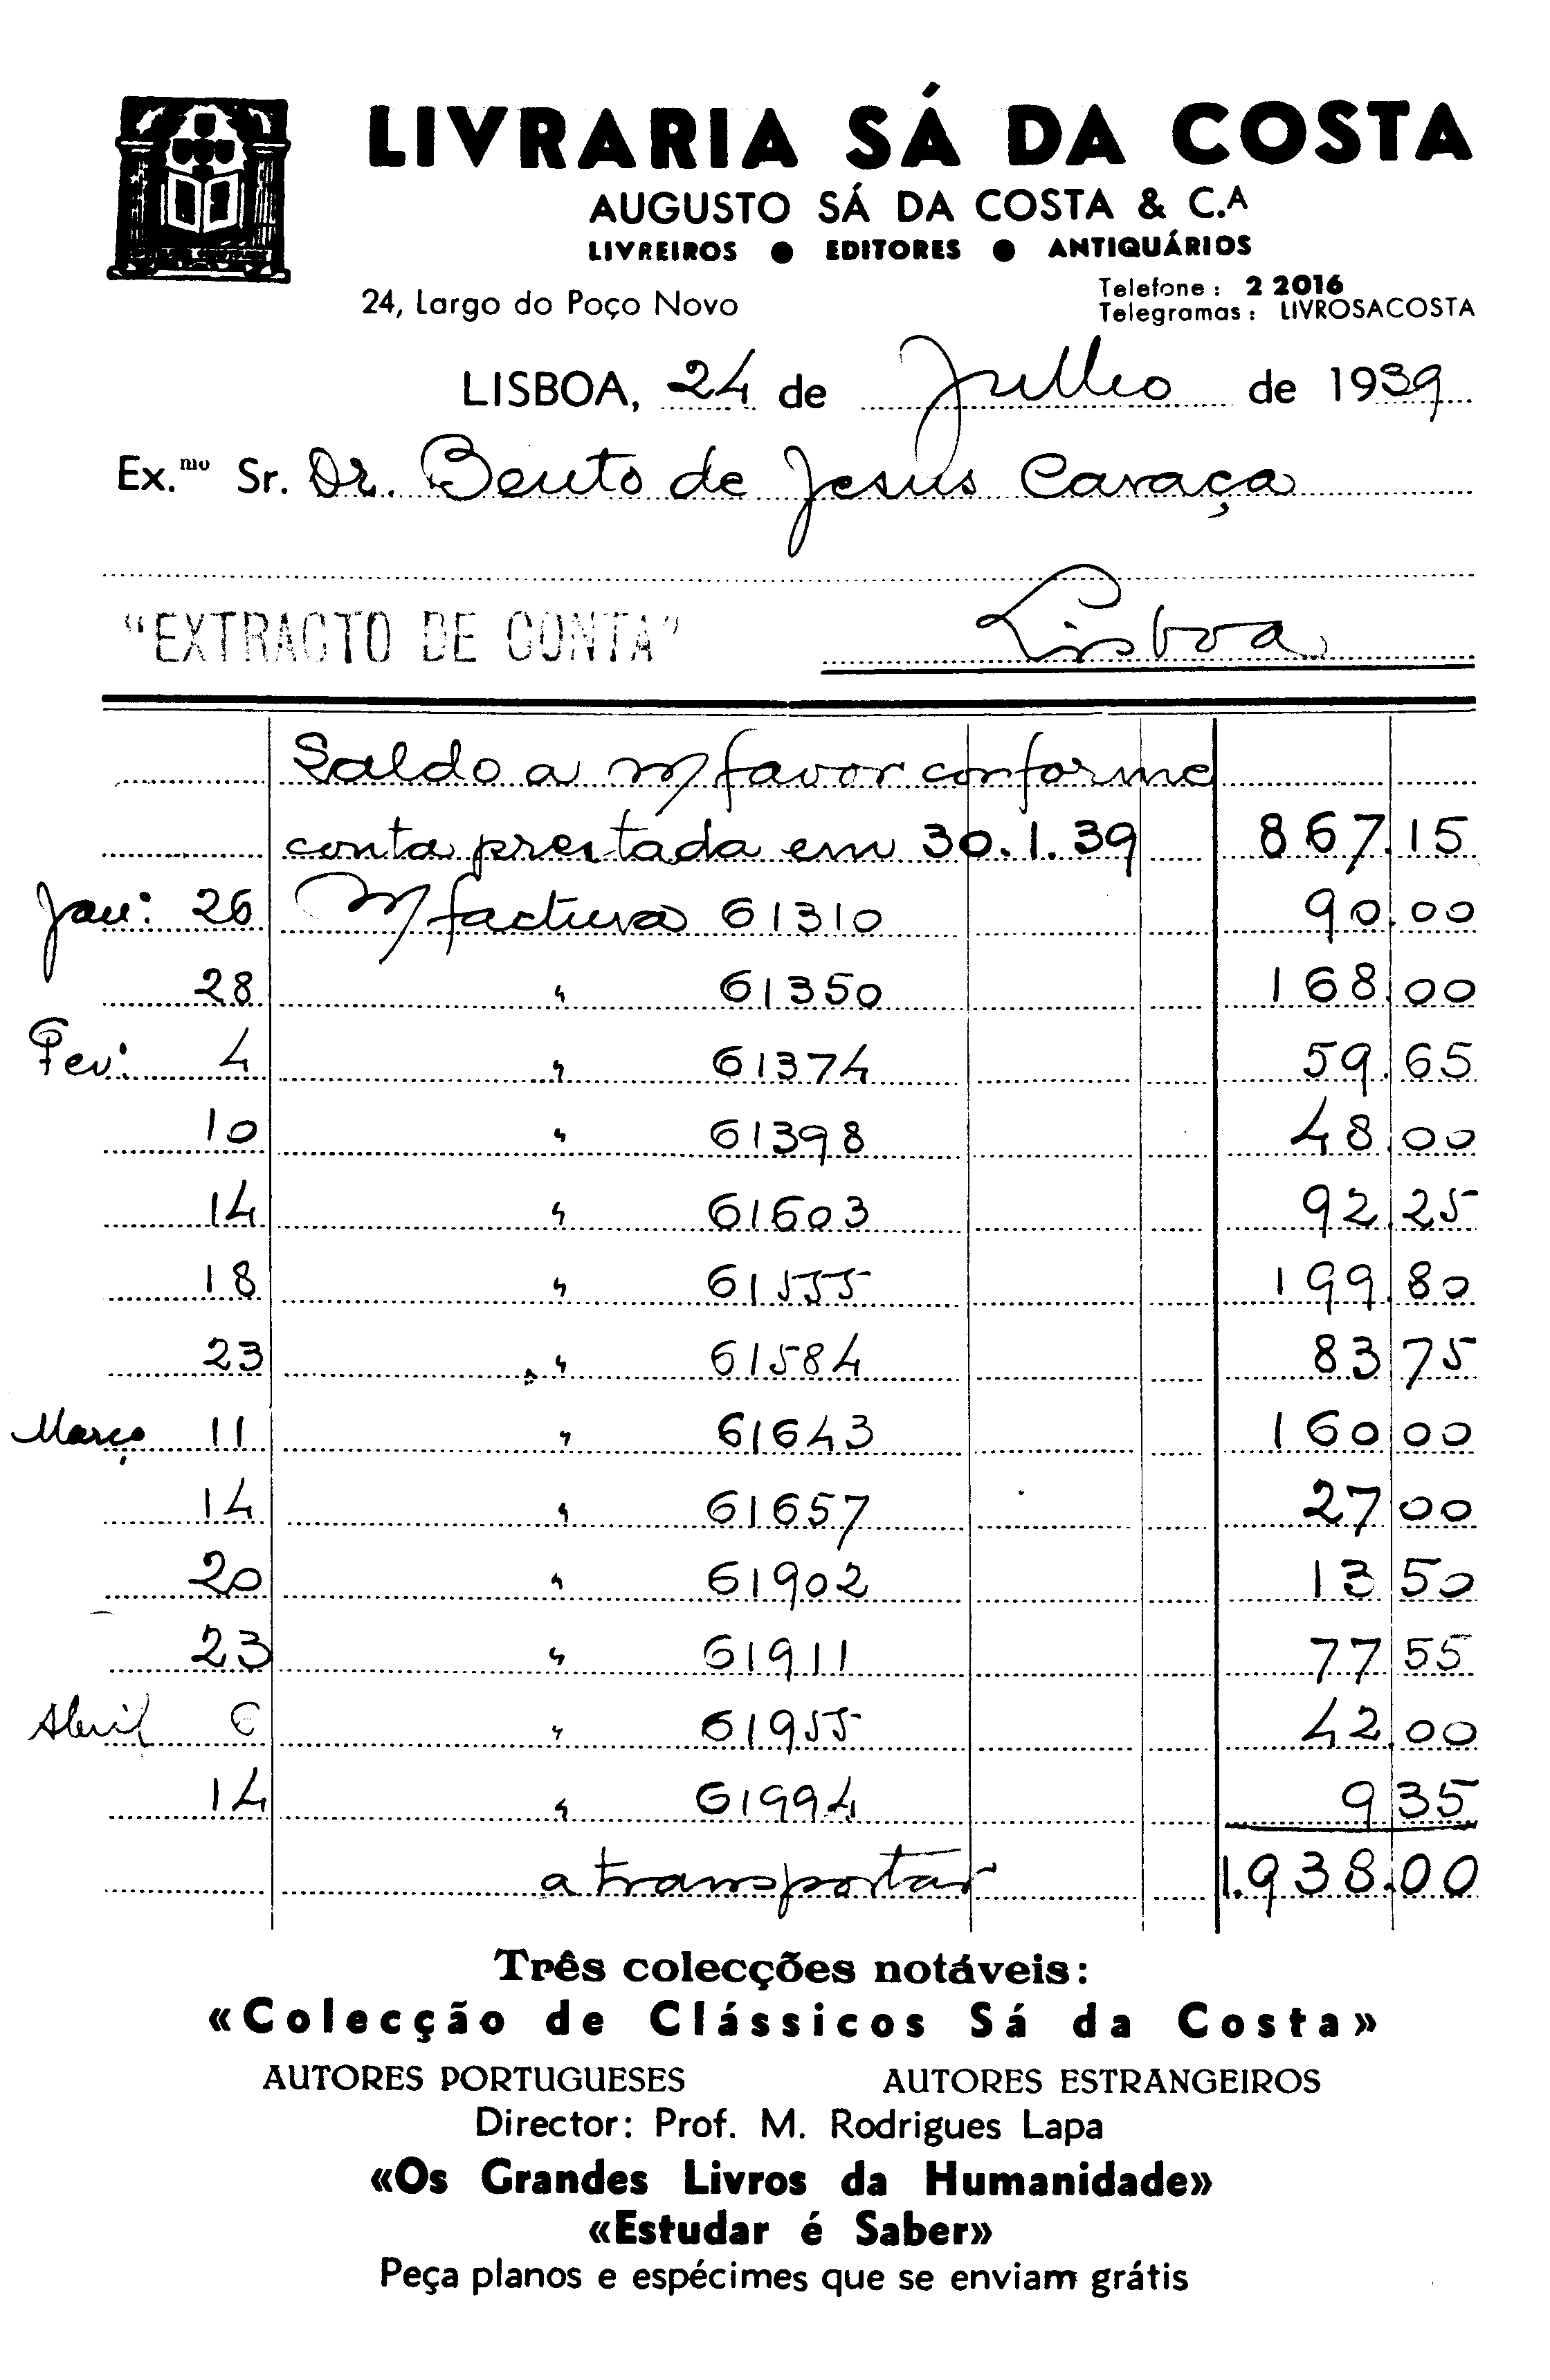 LIVRARIA SÁ DA COSTA
AUGUSTO SÁ DA COSTA & C.A
LIVREIROS ● EDITORES ● ANTIQUÁRIOS
24, Largo do Poço Novo
Telefone : 2 2016
Telegramas : LIVROSACOSTA
LISBOA, 24 de Julho de 1939
Ex.mo Sr. Dr. Bento de Jesus Caraça
"EXTRACTO DE CONTA"
Lisboa
Saldo a m/ favor conforme
conta prestada em 30.1.39 867.15
Jan: 26 m/ factura 61310 90.00
28 " 61350 168.00
Fev: 4 " 61374 59.65
10 " 61398 48.00
14 " 61603 92.25
18 " 61555 199.80
23 " 61584 83 75
Março 11 " 61643 160 00
14 " 61657 27 00
20 " 61902 13 50
23 " 61911 77 55
Abril 6 " 61955 42.00
14 " 61994 9 35
a transportar 1.938.00
Três colecções notáveis:
«Colecção de Clássicos Sá da Costa»
AUTORES PORTUGUESES AUTORES ESTRANGEIROS
Director: Prof. M. Rodrigues Lapa
«Os Grandes Livros da Humanidade»
«Estudar é Saber»
Peça planos e espécimes que se enviam grátis